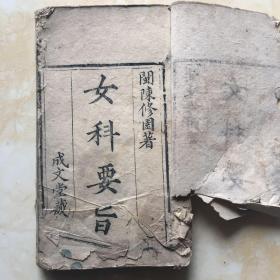 閩陳修園著
女科要旨
成文堂藏